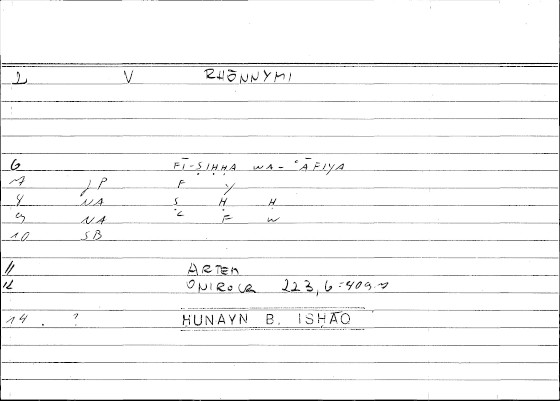 2 V RHŌNNYMI
6 FĪ-ṢIḤḤA WA-ʿĀFIYA
7 JP F Y
8 NA Ṣ Ḥ Ḥ
9 NA ʿ F W
10 SB
11 ARTEM
12 ONIROCR 223, 6 = 409,
14 . ? HUNAYN B. ISḤĀQ